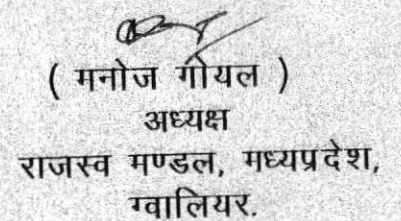 ( मनोज गोयल )
अध्यक्ष
राजस्व मण्डल, मध्यप्रदेश,
ग्वालियर.